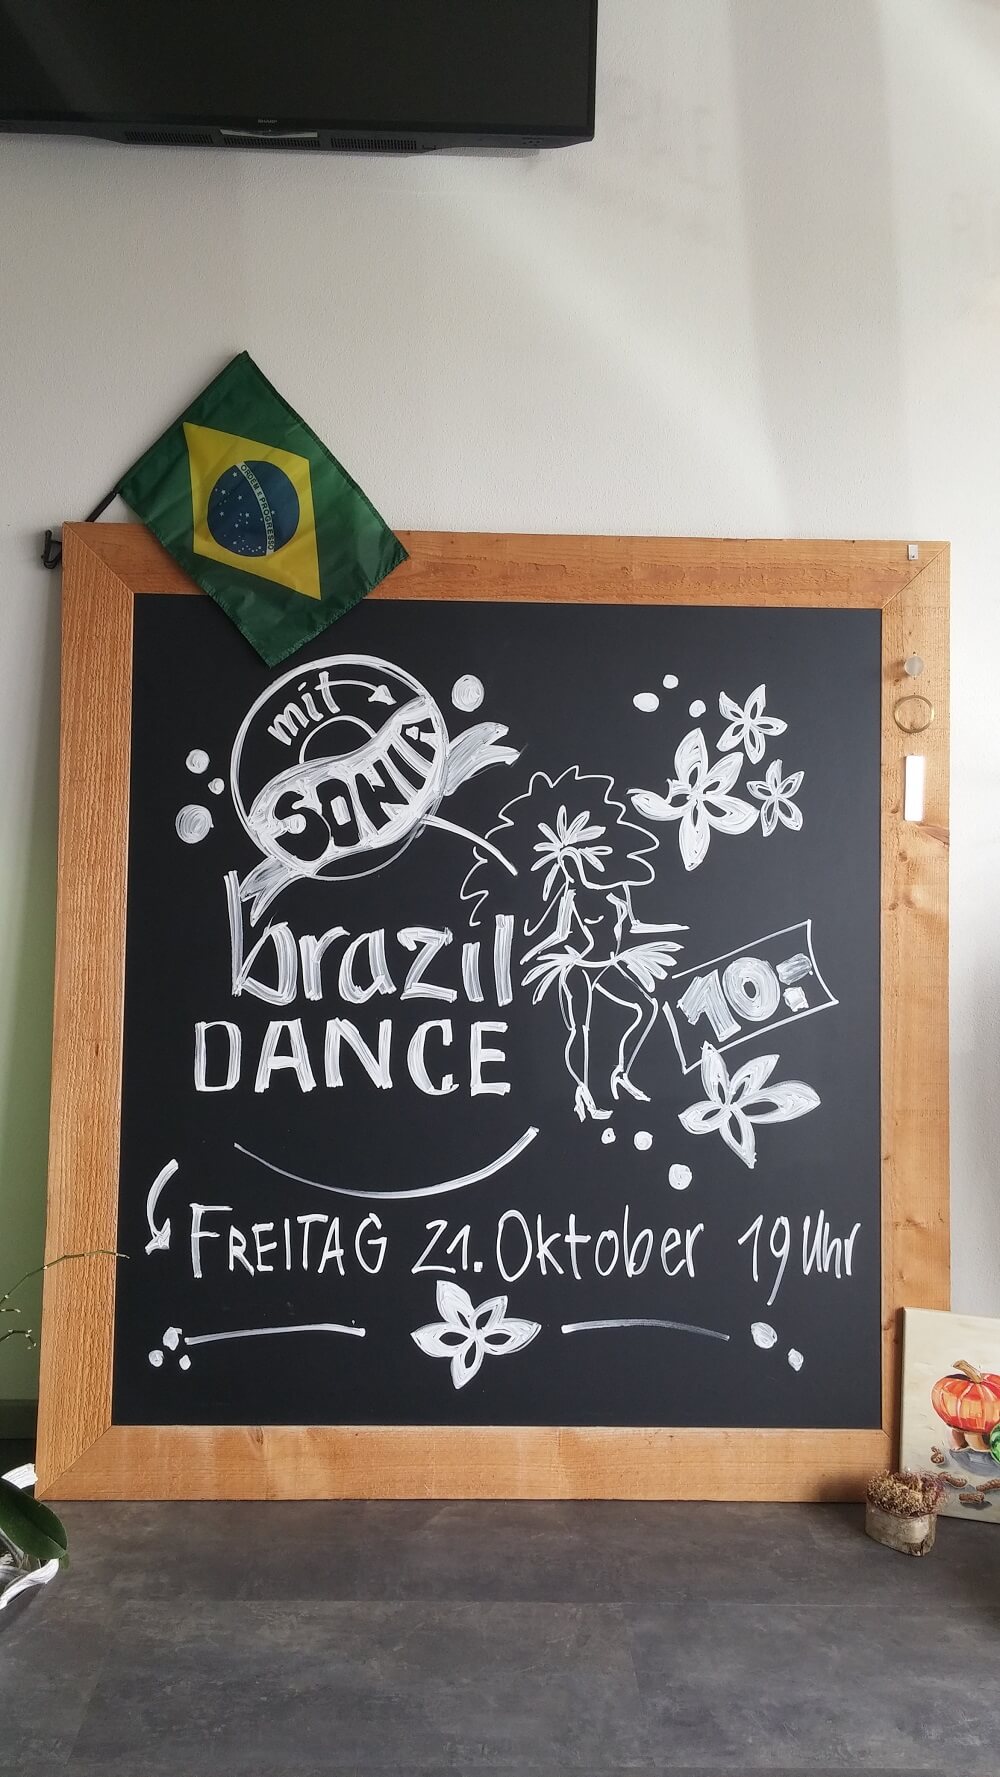 SHARP
ORDEM E PROGRESSO
mit
SONIA
brazil
DANCE
10.-
FREITAG 21. Oktober 19 Uhr